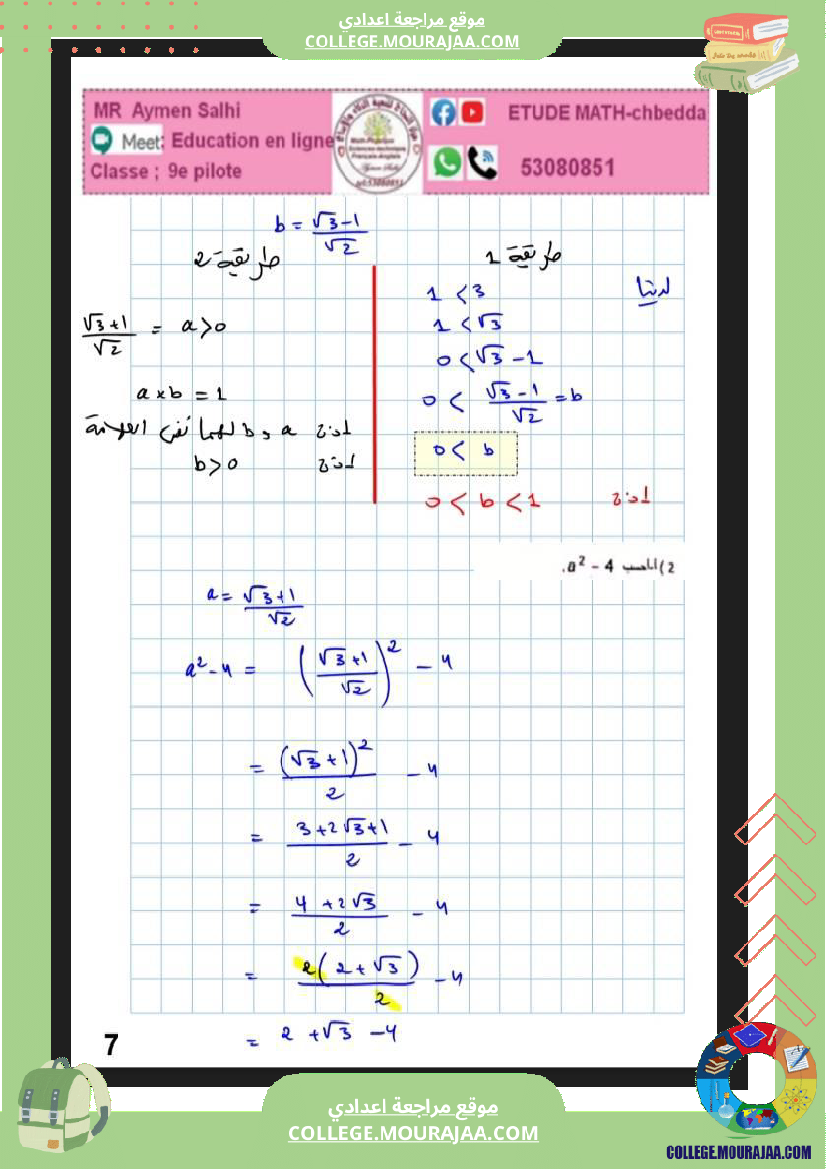 موقع مراجعة اعدادي
COLLEGE.MOURAJAA.COM
MR Aymen Salhi
Meet: Education en ligne
Classe ; 9e pilote
ETUDE MATH-chbedda
53080851
b = (√3-1)/√2
طريقة 1
لدينا
1 < 3
1 < √3
0 < √3 - 1
0 < (√3 - 1)/√2 = b
0 < b
إذن 0 < b < 1
طريقة 2
(√3+1)/√2 = a > 0
a × b = 1
إذن a و b لهما نفس العلامة
إذن b > 0
2) احسب a² - 4.
a = (√3+1)/√2
a² - 4 = ((√3+1)/√2)² - 4
= (√3+1)²/2 - 4
= (3+2√3+1)/2 - 4
= (4+2√3)/2 - 4
= 2(2+√3)/2 - 4
= 2 + √3 - 4
7
موقع مراجعة اعدادي
COLLEGE.MOURAJAA.COM
COLLEGE.MOURAJAA.COM